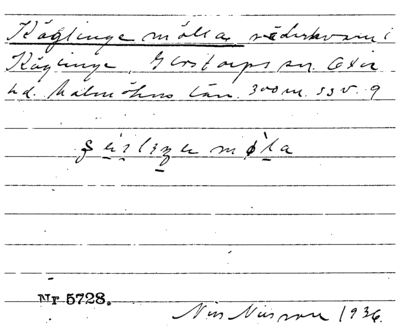 Käglinge mölla väderkvarn i
Käglinge, Glostorps sn Oxie
hd. Malmöhus län. 300 m. SSV. 9
mǿla
Nr 5728.
Nils Nilsson 1936.